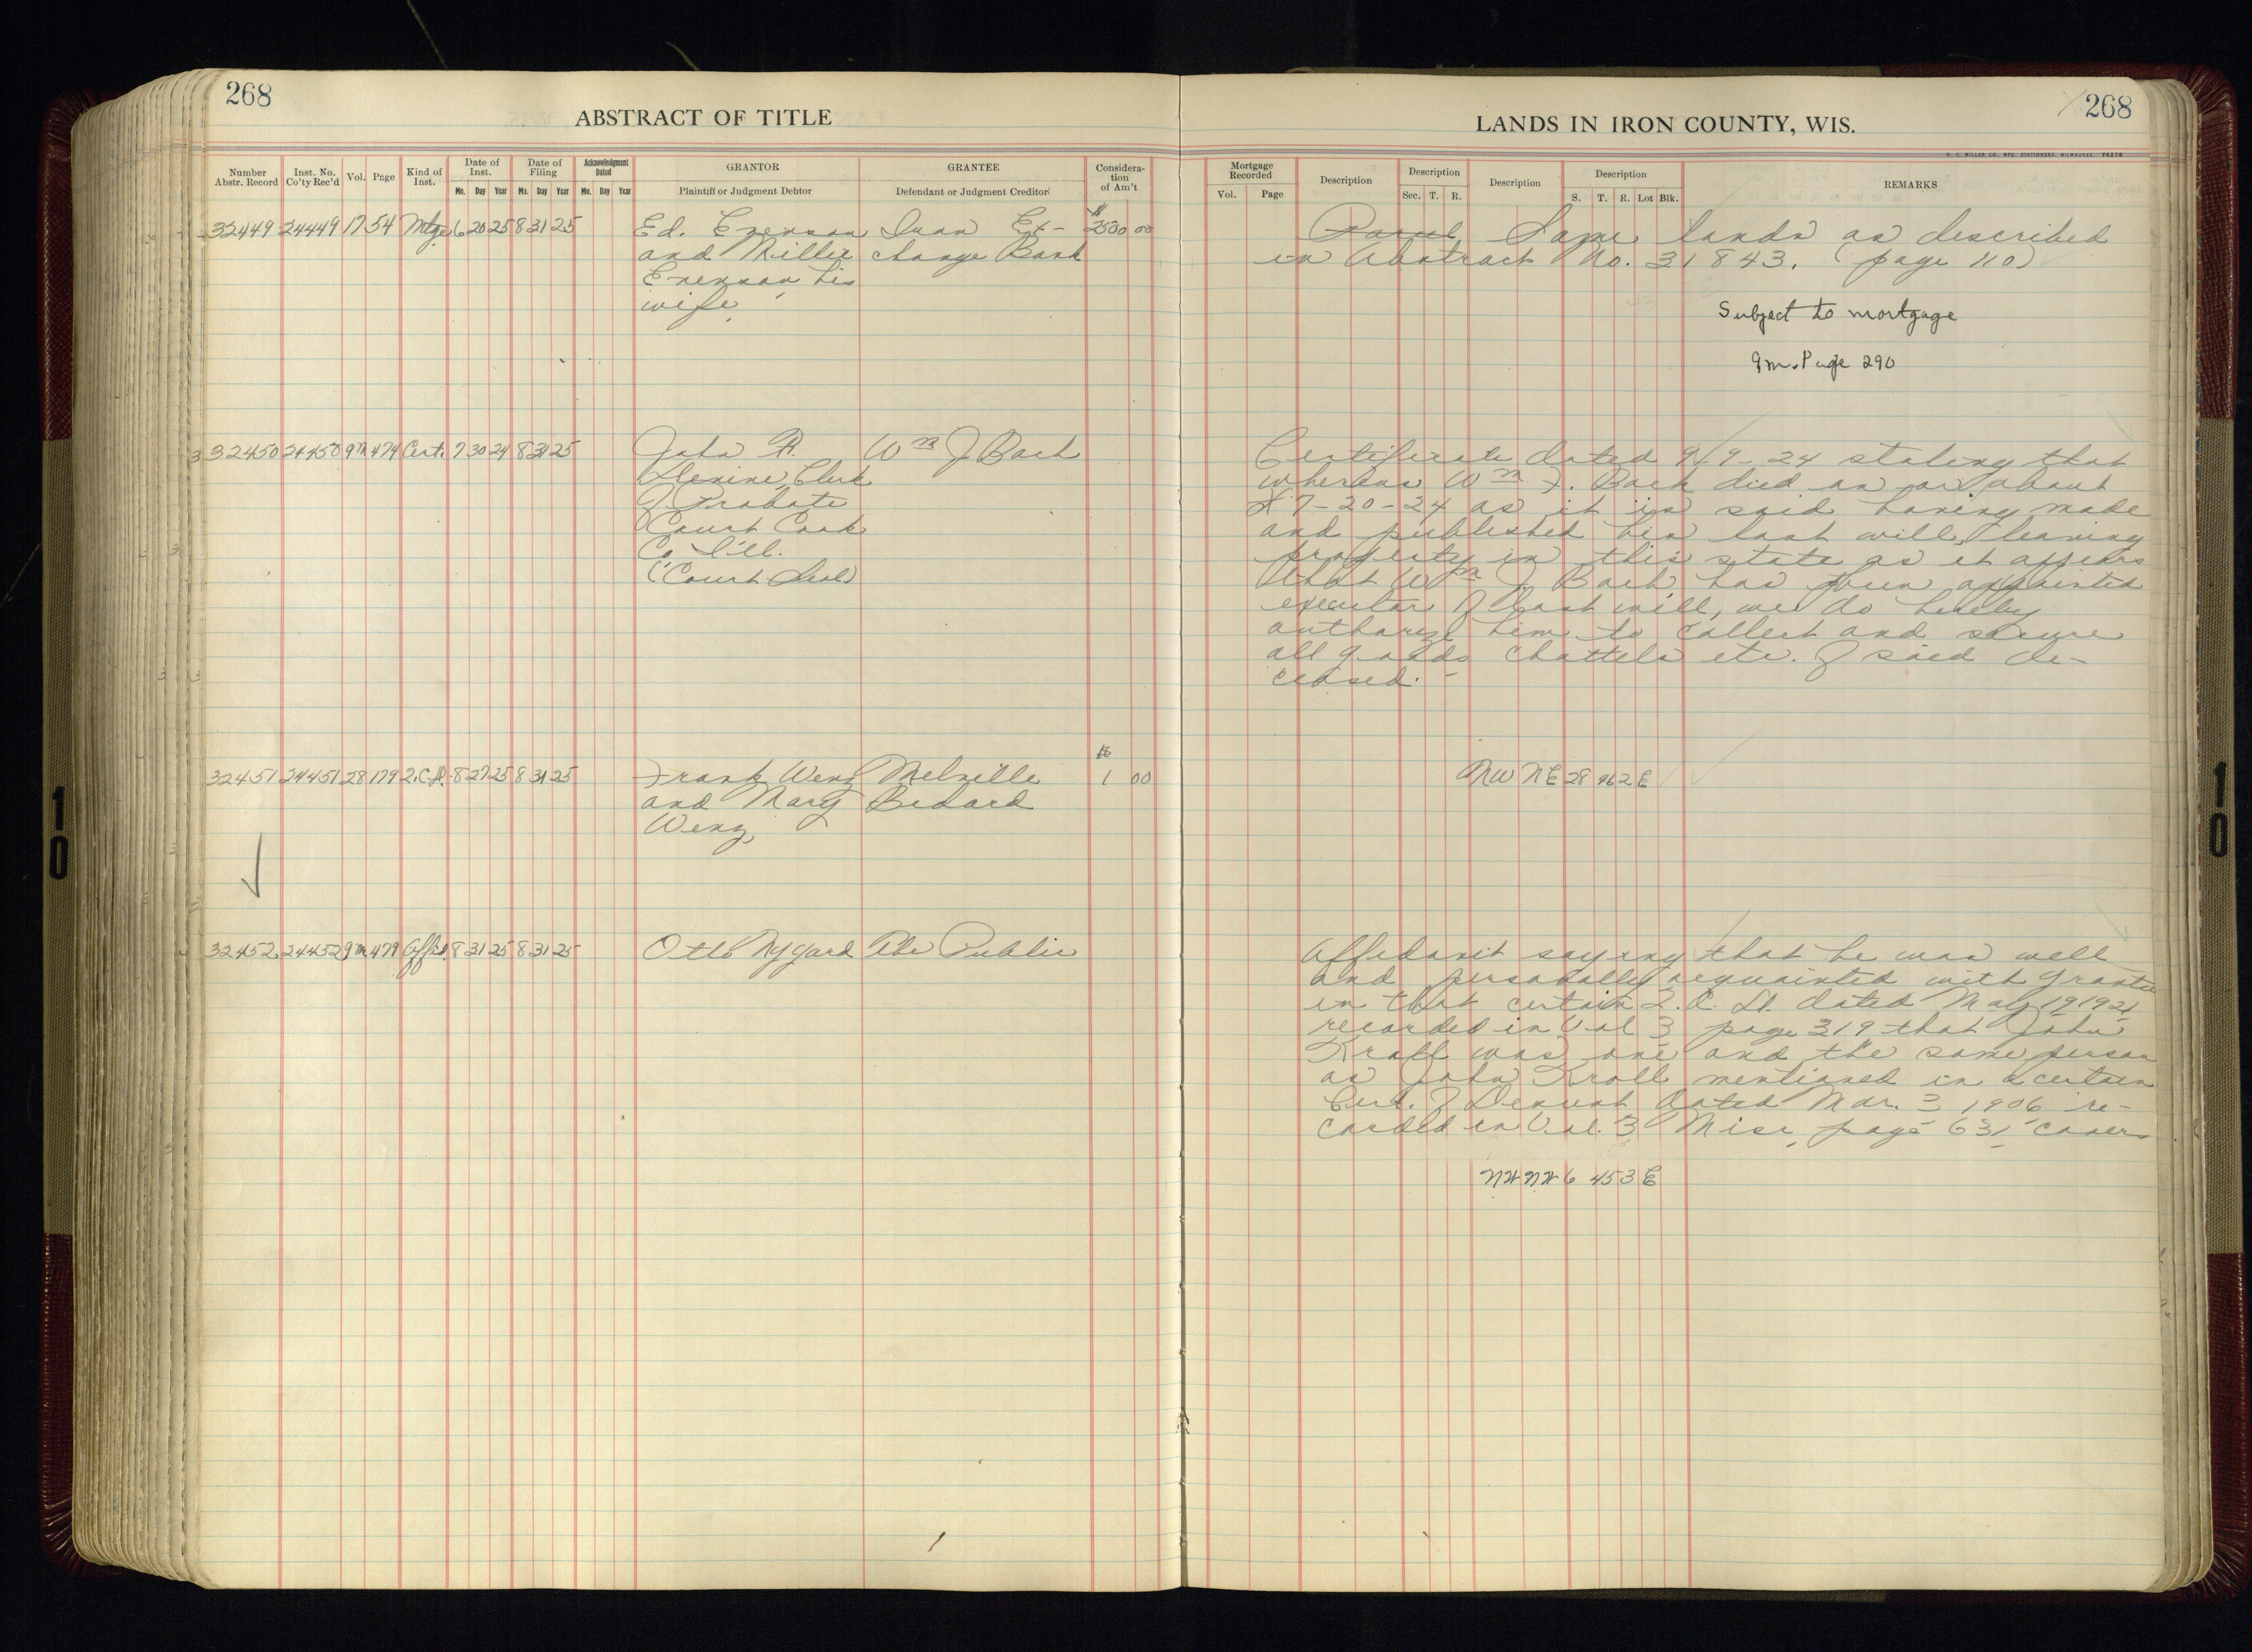 268
ABSTRACT OF TITLE
Number Abstr. Record
Inst. No. Co'ty Rec'd
Vol.
Page
Kind of Inst.
Date of Inst.
Mo. Day Year
Date of Filing
Mo. Day Year
Acknowledgment Dated
Mo. Day Year
GRANTOR
Plaintiff or Judgment Debtor
GRANTEE
Defendant or Judgment Creditor
Consideration of Am't
32449 24449 17 54 Mtge 6 20 25 8 31 25 Ed. Evenson Iron Ex- $ 2500 00
and Millie change Bank
Evenson his
wife
32450 24450 9m 474 Cert. 7 30 24 8 31 25 John F. Wm J Bach
Devine, Clerk
of Probate
Court Cook
Co Ill.
(Court Seal)
32451 24451 28 179 2.C.D. 8 27 25 8 31 25 Frank Wenz Melville $ 1 00
and Mary Bedard
Wenz
32452 24452 9m 479 Affid. 8 31 25 8 31 25 Otto Nygard The Public
268
LANDS IN IRON COUNTY, WIS.
H. C. MILLER CO., MFG. STATIONERS, MILWAUKEE
Mortgage Recorded
Vol. Page
Description
Description
Sec. T. R.
Description
Description
S. T. R. Lot Blk.
REMARKS
Same lands as described
in Abstract No. 31843. (page 110)
Subject to mortgage
9m. Page 290
Certificate dated 9/9-24 stating that
whereas Wm F. Bach died on or about
7-20-24 as it is said having made
and published his last will, leaving
property in this state as it appears
that Wm J Bach has been appointed
executor of last will, we do hereby
authorize him to collect and secure
all goods chattels etc. of said de-
ceased.
NW NE 28 46 2 E
Affidavit saying that he was well
and personally acquainted with grantee
in that certain 2. C. D. dated May 19 1921
recorded in Vol 3 page 319 that John
Kroll was one and the same person
as John Kroll mentioned in a certain
Cert. of dated Mar. 3 1906 re-
corded in Vol. 3 Misc, page 631, cover
NW NW 6 45 3 E
10
10